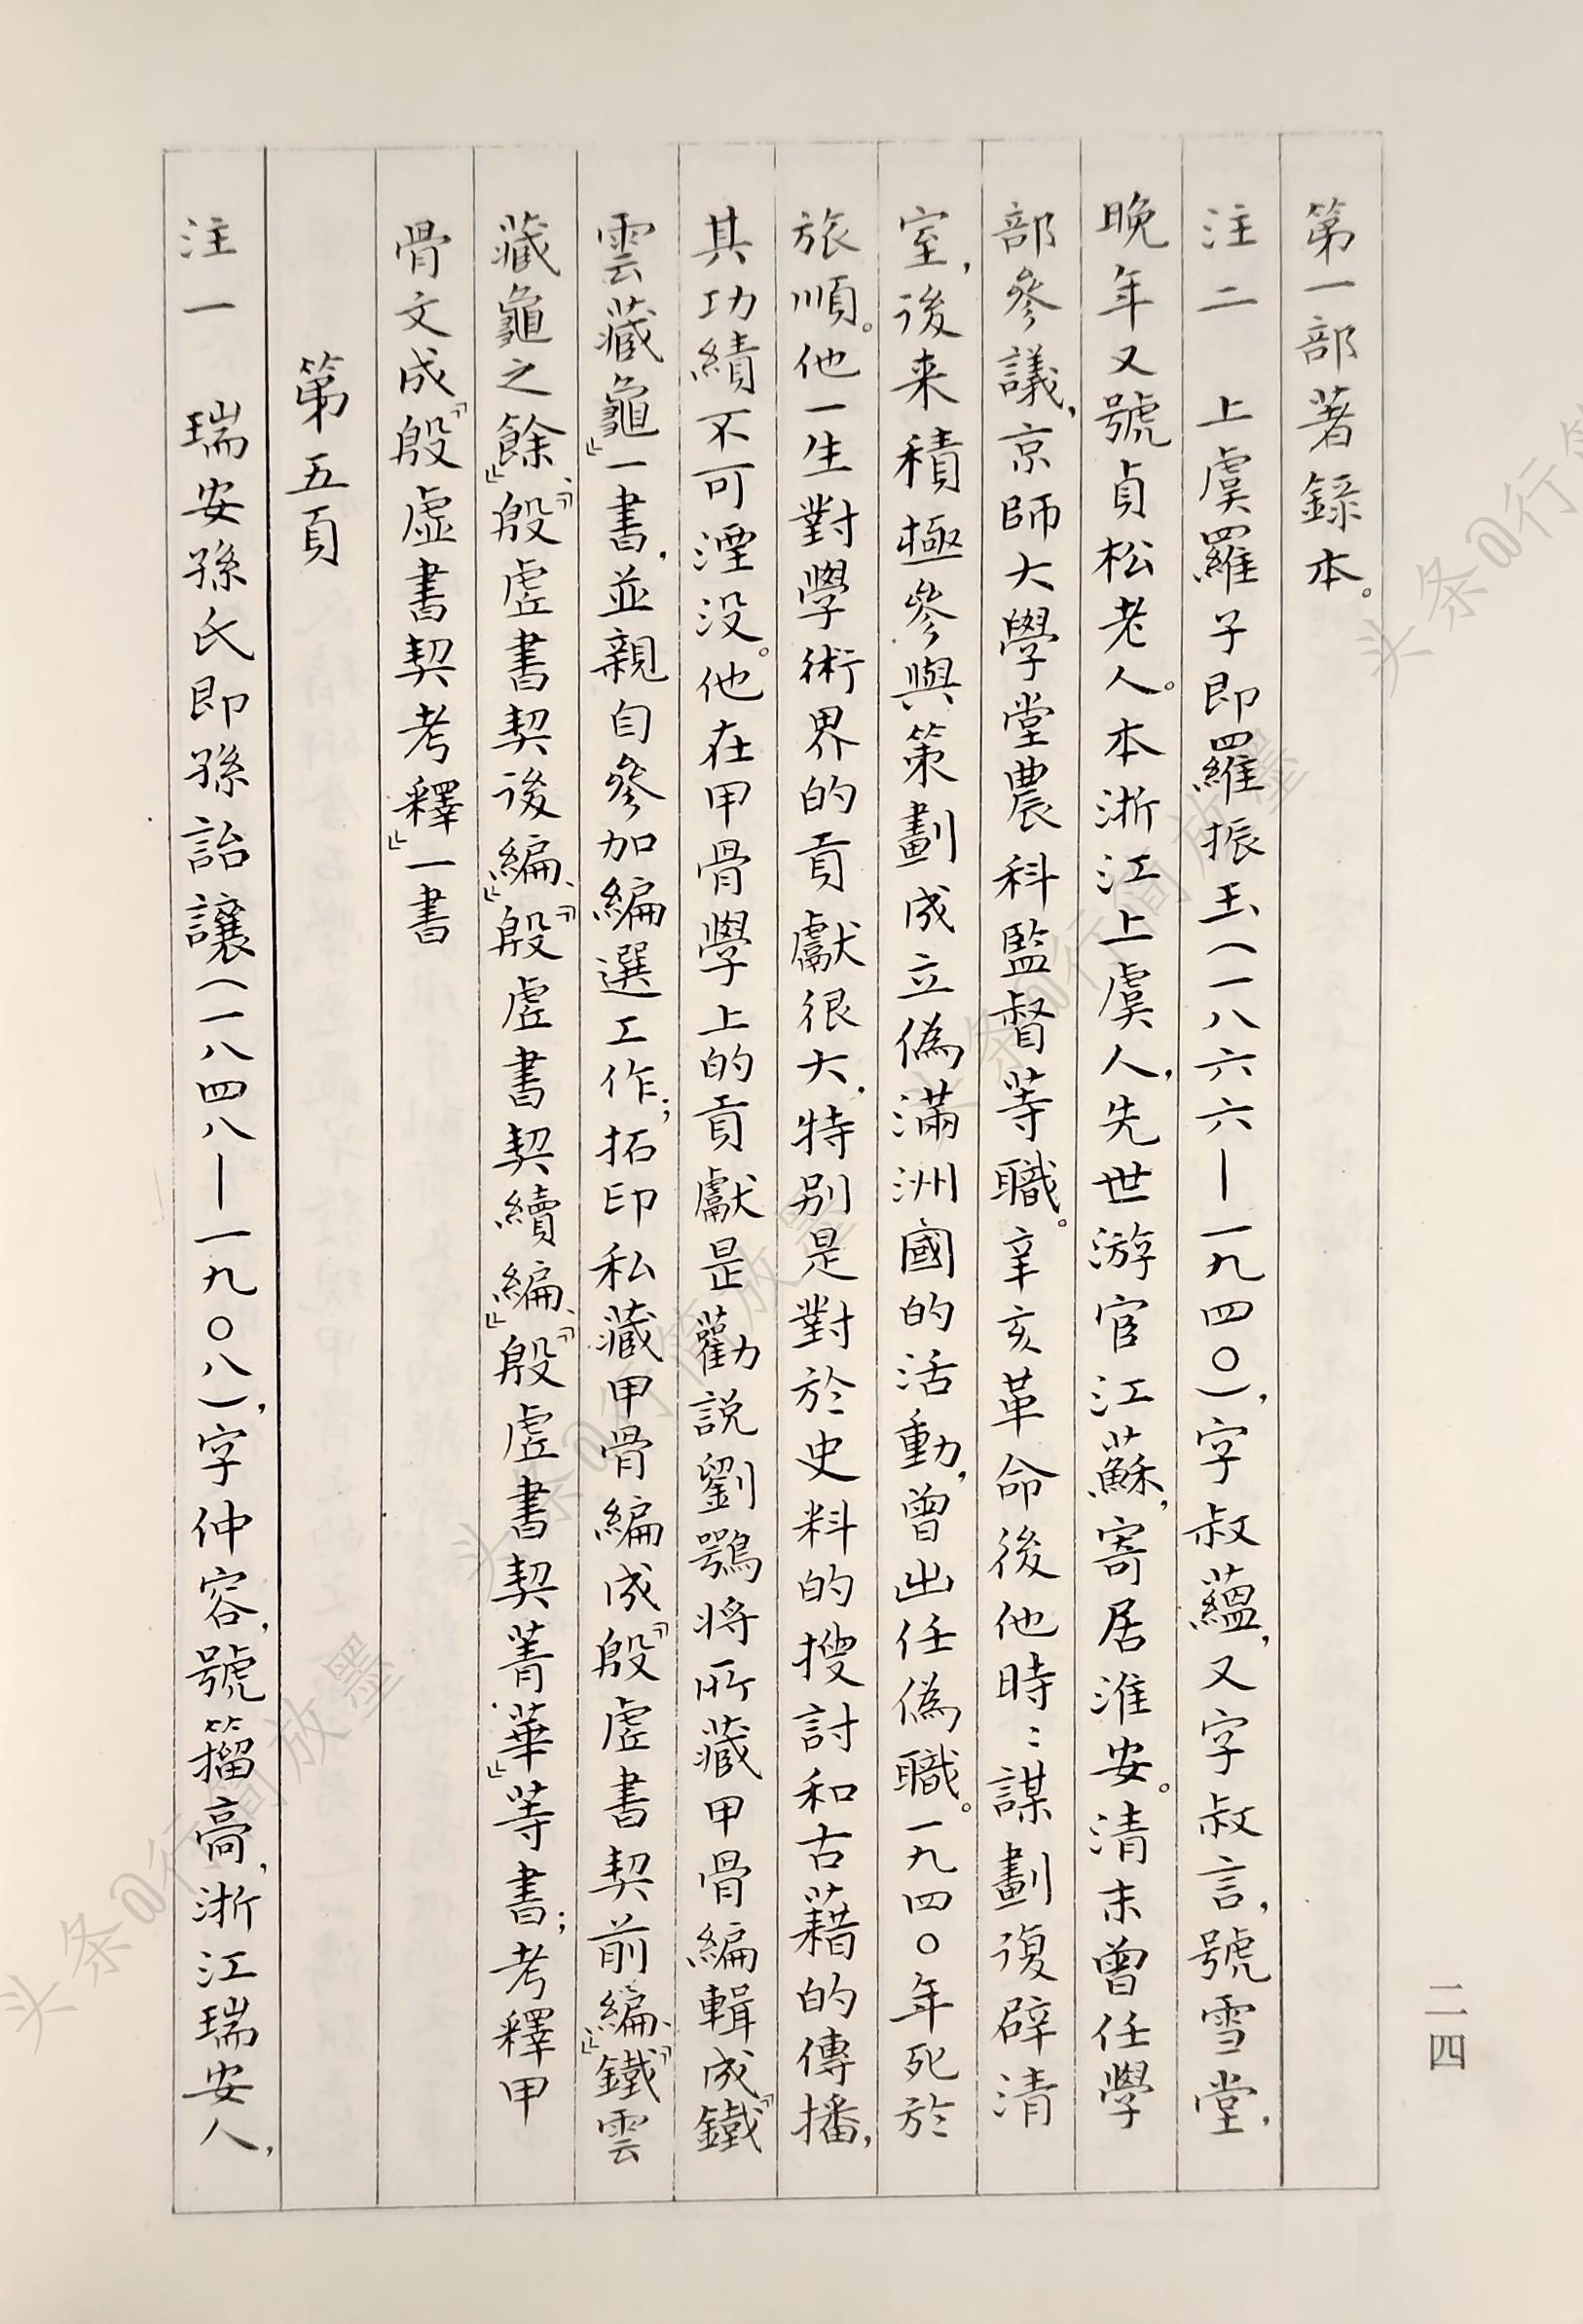 第一部著錄本。
注二　上虞羅子即羅振玉（一八六六—一九四〇），字叔蘊，又字叔言，號雪堂，
晚年又號貞松老人。本浙江上虞人，先世游官江蘇，寄居淮安。清末曾任學
部參議，京師大學堂農科監督等職。辛亥革命後他時〻謀劃復辟清
室，後来積極參與策劃成立偽滿洲國的活動，曾出任偽職。一九四〇年死於
旅順。他一生對學術界的貢獻很大，特别是對於史料的搜討和古藉的傳播，
其功績不可湮没。他在甲骨學上的貢獻是勸説劉鶚将所藏甲骨編輯成『鐵
雲藏龜』一書，並親自參加編選工作；拓印私藏甲骨編成『殷虛書契前編』、『鐵雲
藏龜之餘』、『殷虛書契後編』、『殷虛書契續編』、『殷虛書契菁華』等書；考釋甲
骨文成『殷虛書契考釋』一書
第五頁
注一　瑞安孫氏即孫詒讓（一八四八—一九〇八），字仲容，號籀高，浙江瑞安人，
二四
头条@行簡放墨
头条@行簡放墨
头条@行簡放墨
头条@行簡